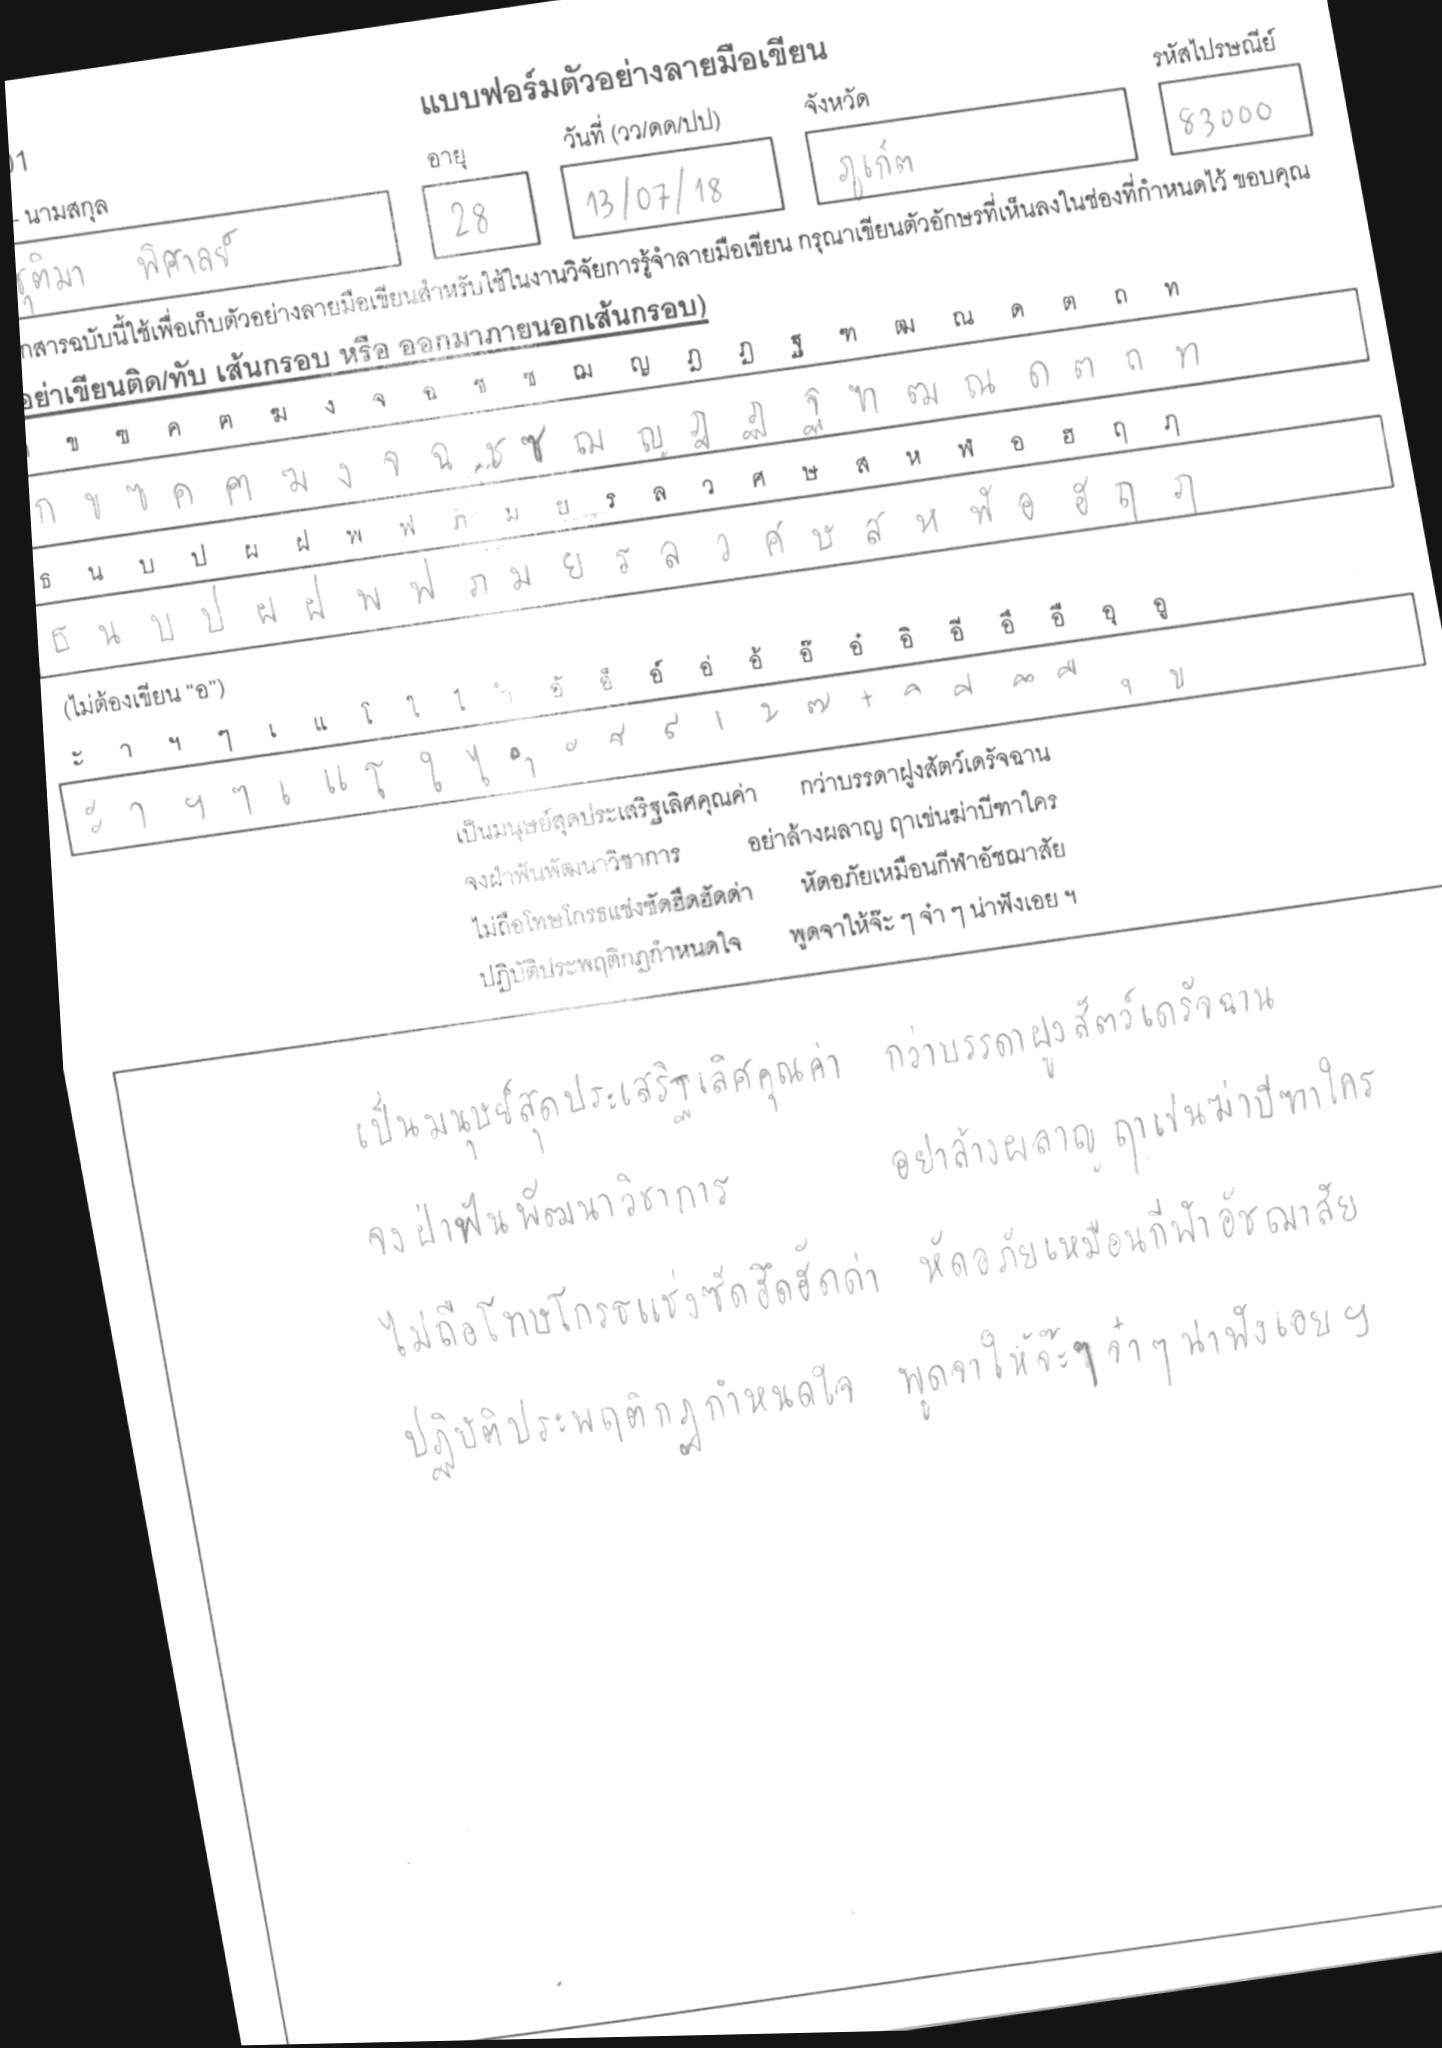 แบบฟอร์มตัวอย่างลายมือเขียน
01
- นามสกุล อายุ วันที่ (วว/ดด/ปป) จังหวัด รหัสไปรษณีย์
ชุติมา พิศาลย์ 28 13/07/18 ภูเก็ต 83000
กสารฉบับนี้ใช้เพื่อเก็บตัวอย่างลายมือเขียนสำหรับใช้ในงานวิจัยการรู้จำลายมือเขียน กรุณาเขียนตัวอักษรที่เห็นลงในช่องที่กำหนดไว้ ขอบคุณ
อย่าเขียนติด/ทับ เส้นกรอบ หรือ ออกมาภายนอกเส้นกรอบ)
ข ฃ ค ฅ ฆ ง จ ฉ ช ซ ฌ ญ ฎ ฏ ฐ ฑ ฒ ณ ด ต ถ ท
ก ข ฃ ค ฅ ฆ ง จ ฉ ช ซ ฌ ญ ฎ ฏ ฐ ฑ ฒ ณ ด ต ถ ท
ธ น บ ป ผ ฝ พ ฟ ภ ม ย ร ล ว ศ ษ ส ห ฬ อ ฮ ฤ ภ
ธ น บ ป ผ ฝ พ ฟ ภ ม ย ร ล ว ศ ษ ส ห ฬ อ ฮ ฤ ภ
(ไม่ต้องเขียน “อ”)
ะ า ฯ ๆ เ แ โ ใ ไ ำ อั อ็ อ์ อ่ อ้ อ๊ อ๋ อิ อี อึ อื อุ อู
ะ า ฯ ๆ เ แ โ ใ ไ ำ ั ็ ์ ่ ้ ๊ ๋ ิ ี ึ ื ุ ู
เป็นมนุษย์สุดประเสริฐเลิศคุณค่า กว่าบรรดาฝูงสัตว์เดรัจฉาน
จงฝ่าฟันพัฒนาวิชาการ อย่าล้างผลาญ ฤาเข่นฆ่าบีฑาใคร
ไม่ถือโทษโกรธแช่งซัดฮึดฮัดด่า หัดอภัยเหมือนกีฬาอัชฌาสัย
ปฏิบัติประพฤติกฎกำหนดใจ พูดจาให้จ๊ะ ๆ จ๋า ๆ น่าฟังเอย ฯ
เป็นมนุษย์สุดประเสริฐเลิศคุณค่า กว่าบรรดาฝูงสัตว์เดรัจฉาน
จงฝ่าฟันพัฒนาวิชาการ อย่าล้างผลาญ ฤาเข่นฆ่าบีฑาใคร
ไม่ถือโทษโกรธแช่งซัดฮึดฮัดด่า หัดอภัยเหมือนกีฬาอัชฌาสัย
ปฏิบัติประพฤติกฎกำหนดใจ พูดจาให้จ๊ะๆ จ๋าๆ น่าฟังเอย ฯ